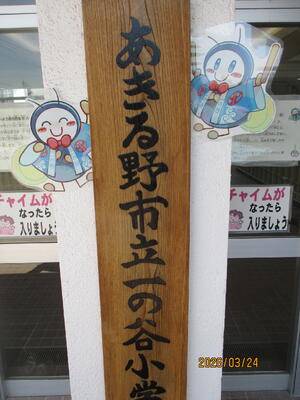 あきる野市立一の谷小学
チャイムが
なったら
入りましょう
チャイムが
なったら
入りましょう
2026/03/24